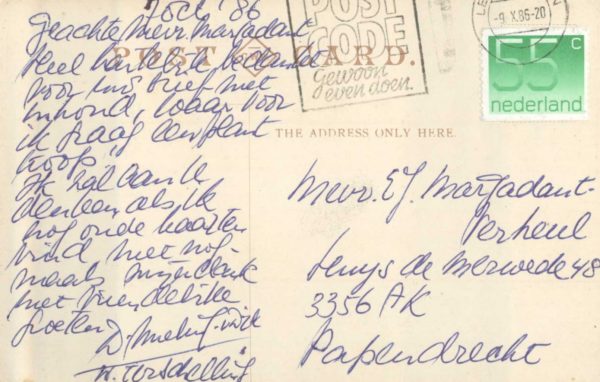 7 Oct '86
Geachte Mevr. Marjadant
Heel hartelijk bedankt
voor Uw brief met
inhoud, waar voor
ik graag een plant
koop
Ik zal aan U
denken als ik
nog oude kaarten
vind, met nog-
maals mijn dank
met vriendelijke
groeten
W. Terschelling
POST CARD.
POST
CODE
Gewoon
even doen.
-9.X.86-20
55 c
nederland
THE ADDRESS ONLY HERE.
Mevr. E.J. Marjadant-
Verheul
Huys de Merwede 48
3356 AK
Papendrecht